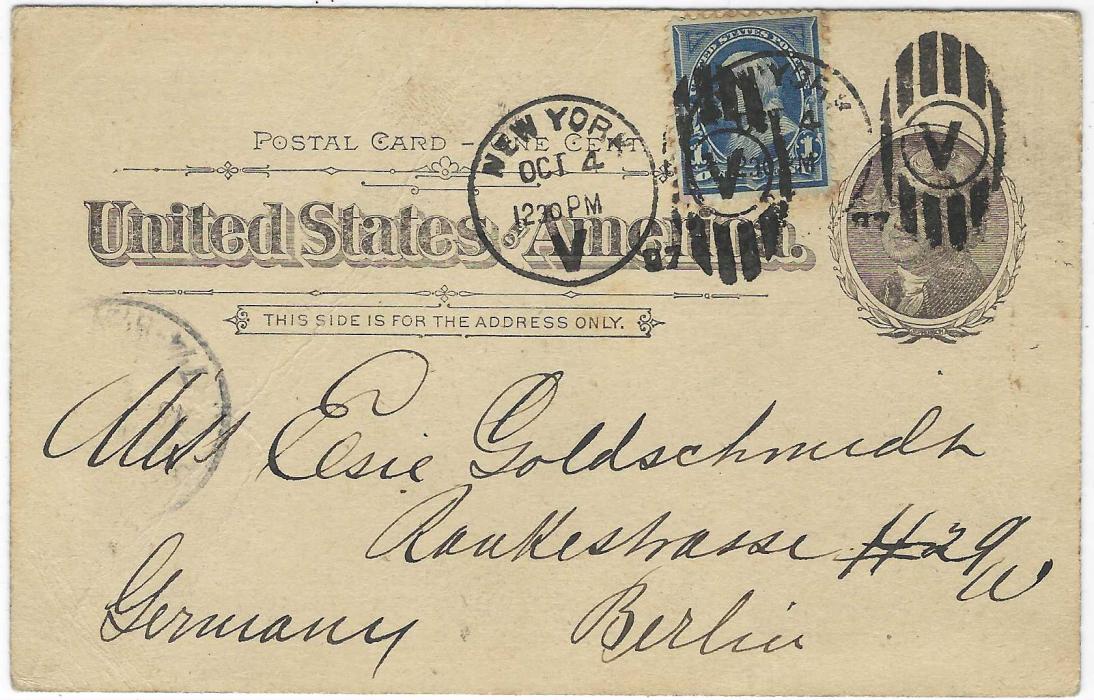 POSTAL CARD - ONE CENT
United States of America.
THIS SIDE IS FOR THE ADDRESS ONLY.
NEW YORK
OCT 4
1230 PM
V
97
UNITED STATES POS
1 1
V
V
Miss Elsie Goldschmidt
Rankestrasse # 29/W
Germany Berlin